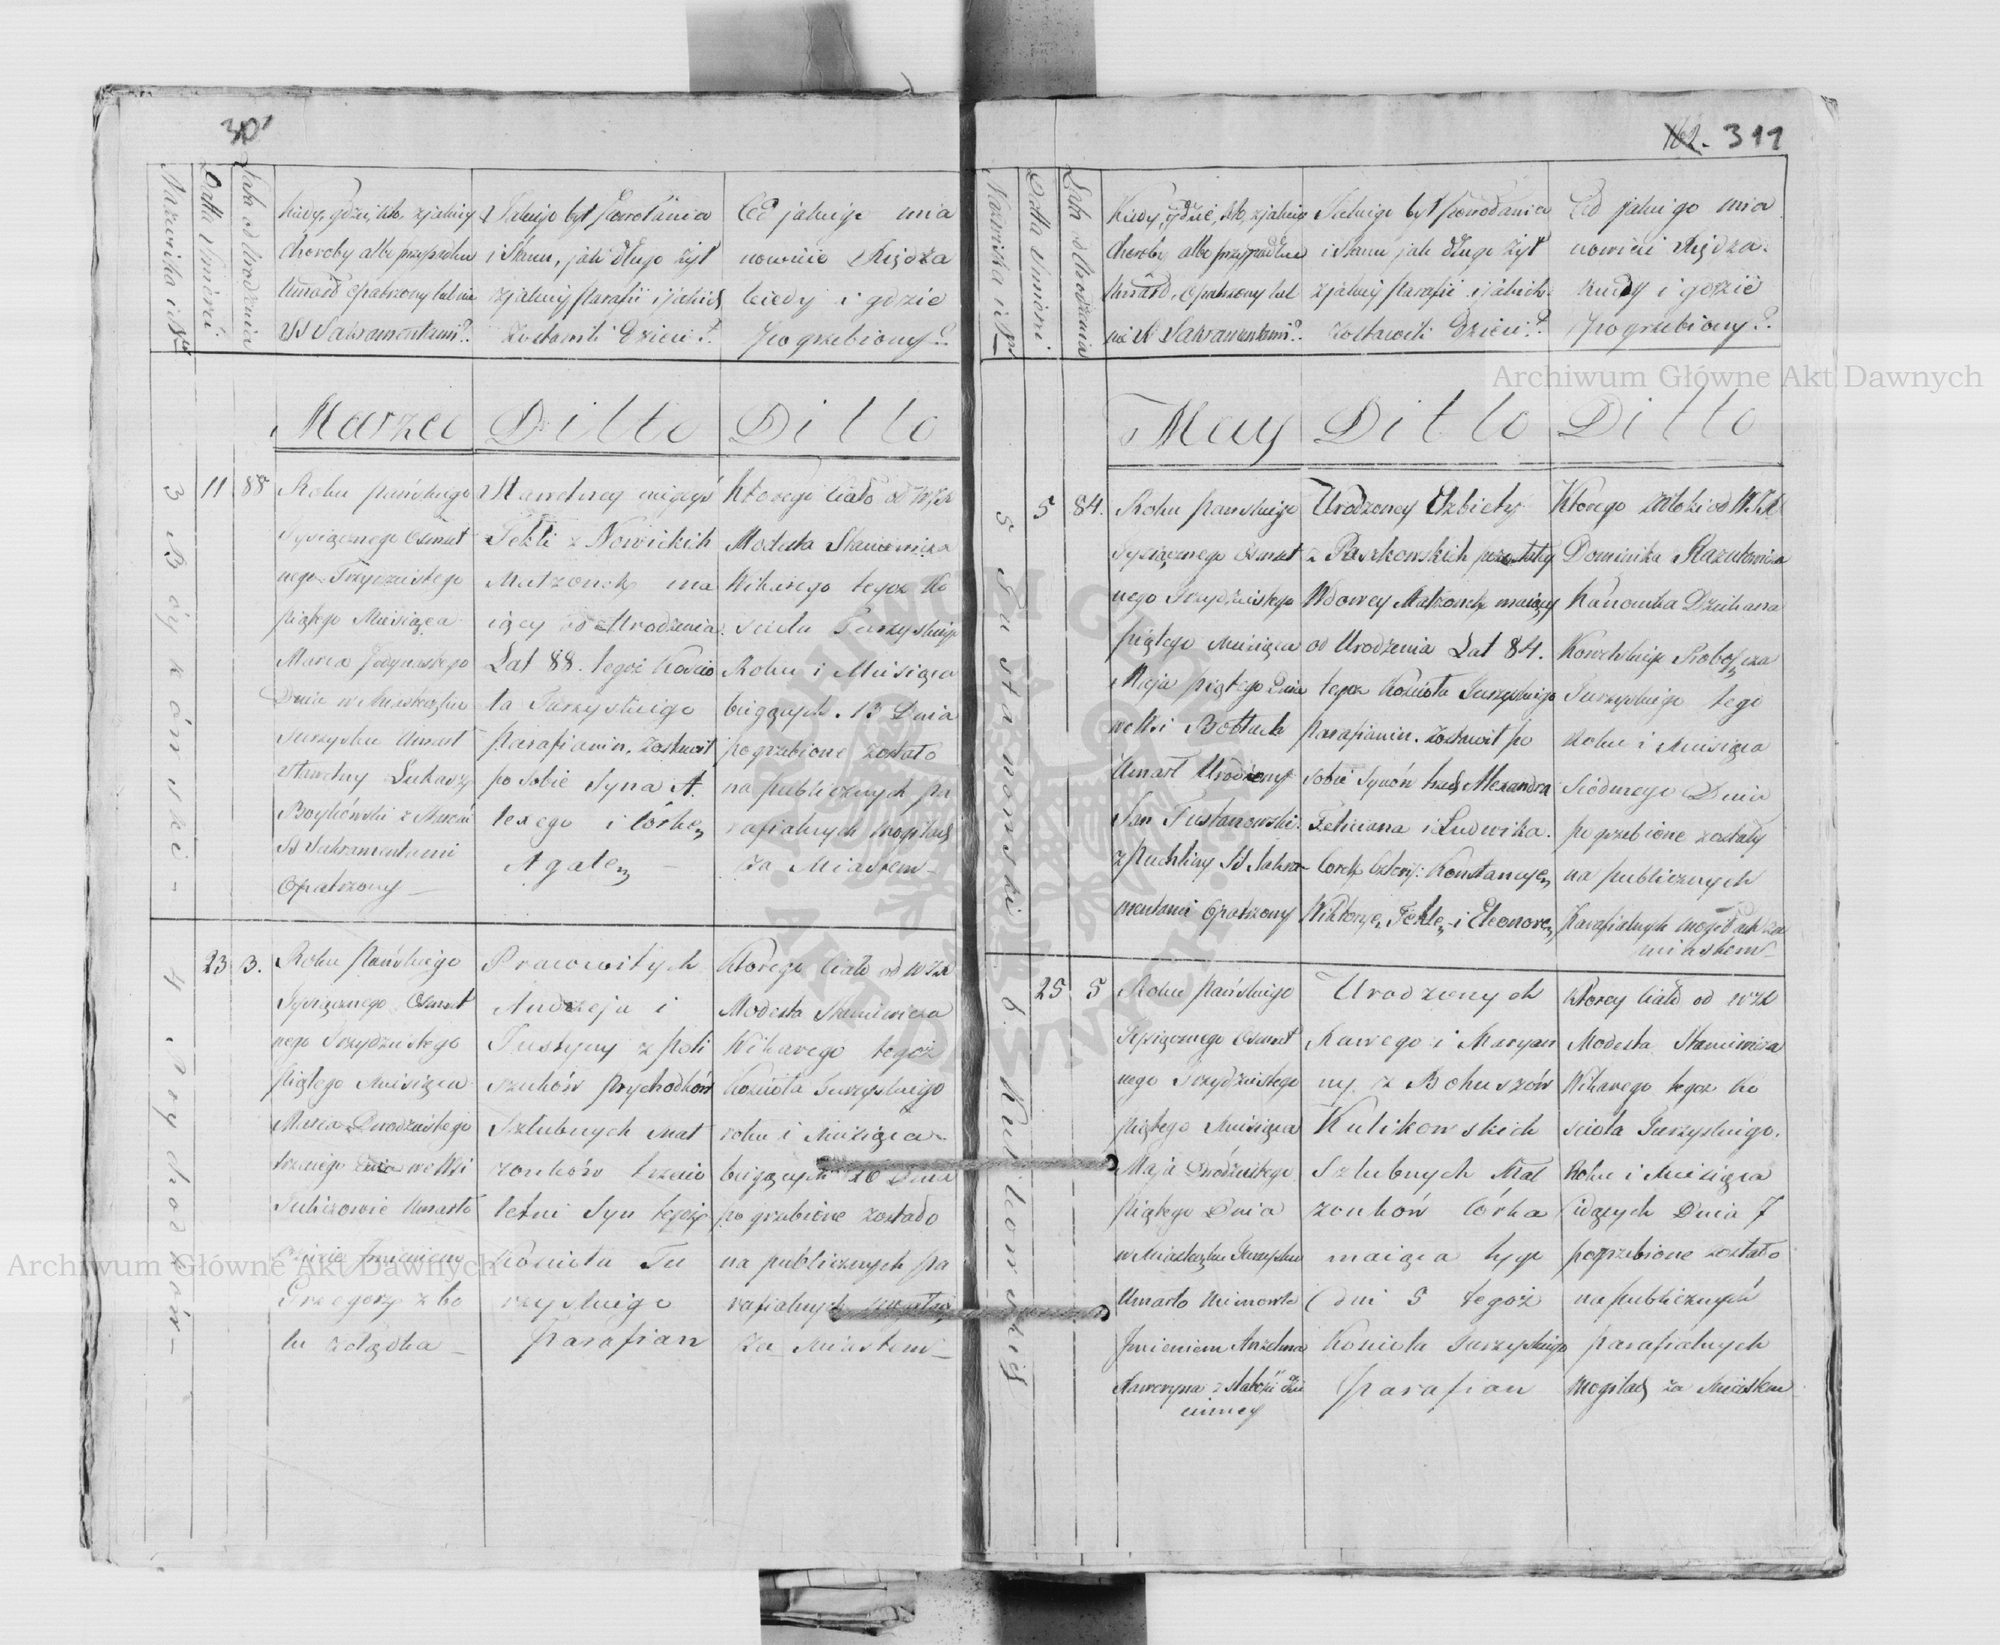 30
Nazwiska i N
Datta Śmierci
Lata od Urodzenia
Kiedy, gdzie, kto, z jakiey
choroby albo przypadku
Umarł opatrzony lub nie
SS Sakramentami?
Jakiego był Powołania
i Stanu, jak długo żył
z jakiey Parafii i jakich
zostawił Dzieci?
Od jakiego mia
nowicie Xiędza
kiedy i gdzie
Pogrzebiony?
Marzec Ditto Ditto
3 Boykowski
11 88
Roku Pańskiego
Tysiącznego Osmset
nego Trzydziestego
Piątego Miesiąca
Marca Jedynastego
Dnia w Miasteczku
Turzysku Umarł
Sławetny Łukasz
Boykowski z
SS Sakramentami
Opatrzony
Sławetney
Tekli z Nowickich
Małżonek ma
iący od Urodzenia
Lat 88. tegoż Kościo
ła Turzyskiego
Parafianin. Zostawił
po sobie Syna A
lexego i Córkę
Agatę
Którego Ciało od WJX
Modesta Staniewicza
Wikarego tegoż Ko
ścioła Turzyskiego
Roku i Miesiąca
bieżących 13 Dnia
pogrzebione zostało
na publicznych Pa
rafialnych Mogiłach
za Miastem
4 Prychodzów
23 3.
Roku Pańskiego
Tysiącznego Osmset
nego Trzydziestego
Piątego Miesiąca
Marca Dwudziestego
trzeciego Dnia we Wsi
Umarło
Dziecie Jmieniem
Grzegorz z bo
lu żołądka
Pracowitych
Andrzeja i
Justyny z Poli
szuków Prychodków
Szlubnych Mał
żonków trzech
letni Syn tegoż
Kościoła Tu
rzyskiego
Parafian
Którego Ciało od WJX
Modesta Staniewicza
Wikarego tegoż
Kościoła Turzyskiego
roku i Miesiąca
bieżących 26 Dnia
pogrzebione zostało
na publicznych Pa
rafialnych
Za Miastem
162. 311
Nazwiska i N
Datta Śmierci
Lata od Urodzenia
Kiedy, gdzie, kto, z jakiey
choroby albo przypadku
Umarł, opatrzony lub
nie SS Sakramentami?
Jakiego był Powołania
i Stanu jak długo żył
z jakiey Parafii i jakich
zostawił Dzieci?
Od jakiego mia
nowicie Xiędza
kiedy i gdzie
Pogrzebiony?
May Ditto Ditto
5 Tustanowski
5 84.
Roku Pańskiego
Tysiącznego Osmset
nego Trzydziestego
piątego Miesiąca
Maja piątego Dnia
we Wsi
Umarł Urodzony
Jan Tustanowski
z Puchliny SS Sakra
mentami Opatrzony
Urodzoney Elżbiety
z Paszkowskich pozostałey
Wdowey Małżonek maiący
od Urodzenia Lat 84.
tegoż Kościoła Turzyskiego
Parafianin. Zostawił po
sobie Synów trzech Alexandra
Feliciana i Ludwika.
Corek Cztery: Konstancyę
Wiktoryę, Teklę, i Eleonorę
Którego Zwłoki od WJX
Dominika
Kanonika Dziekana
Kowelskiego Proboszcza
Turzyskiego tego
Roku i Miesiąca
Siódmego Dnia
pogrzebione zostały
na publicznych
Parafialnych Mogiłach za
miastem
6. Kulikowskich
25 5
Roku Pańskiego
Tysiącznego Osmset
nego Trzydziestego
piątego Miesiąca
Maja Dwódziestego
piątego Dnia
w Miasteczku Turzysku
Umarło Niemowle
Jmieniem Anzelma
Xaweryna z słabości dzie
cinney
Urodzonych
Xawego i Maryan
ny z Bohuszów
Kulikowskich
Szlubnych Mał
żonków Córka
maiąca tyge
dni 5 tegoż
Kościoła Turzyskiego
Parafian
Którey Ciało od WJX
Modesta Staniewicza
Wikarego tegoż Ko
ścioła Turzyskiego.
Roku i Miesiąca
bieżących Dnia 7
pogrzebione zostało
na publicznych
parafialnych
Mogiłach za Miastem
Archiwum Główne Akt Dawnych
Archiwum Główne Akt Dawnych